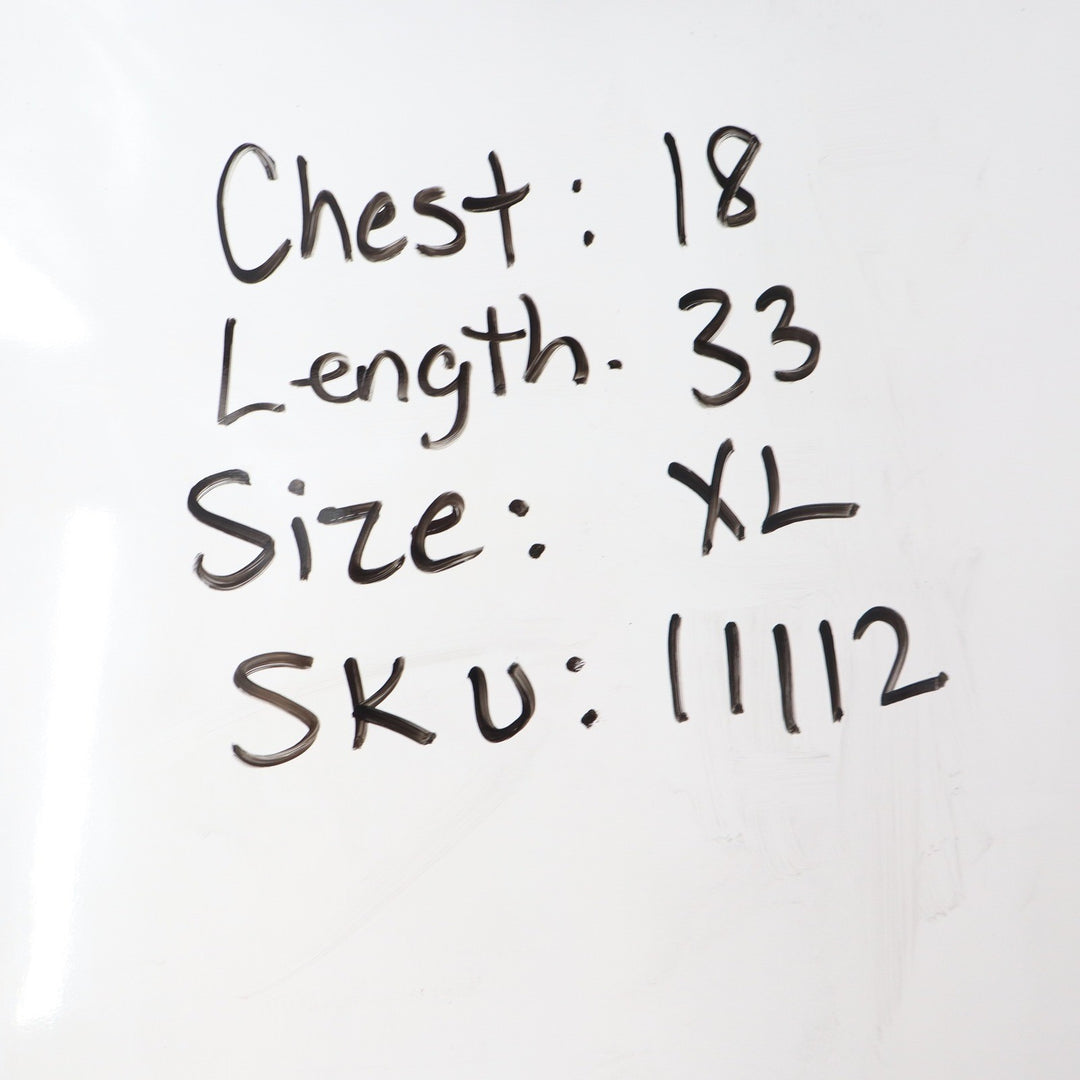 Chest: 18
Length. 33
Size: XL
SKU: 11112